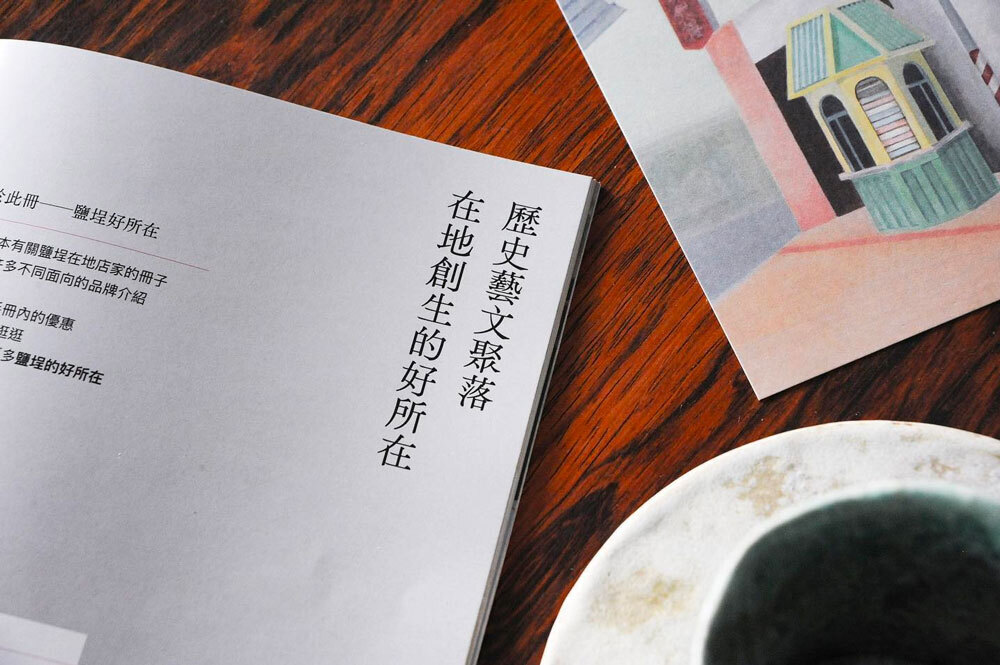 歷史藝文聚落
在地創生的好所在
此冊——鹽埕好所在
本有關鹽埕在地店家的冊子
多不同面向的品牌介紹
冊內的優惠
逛逛
多鹽埕的好所在